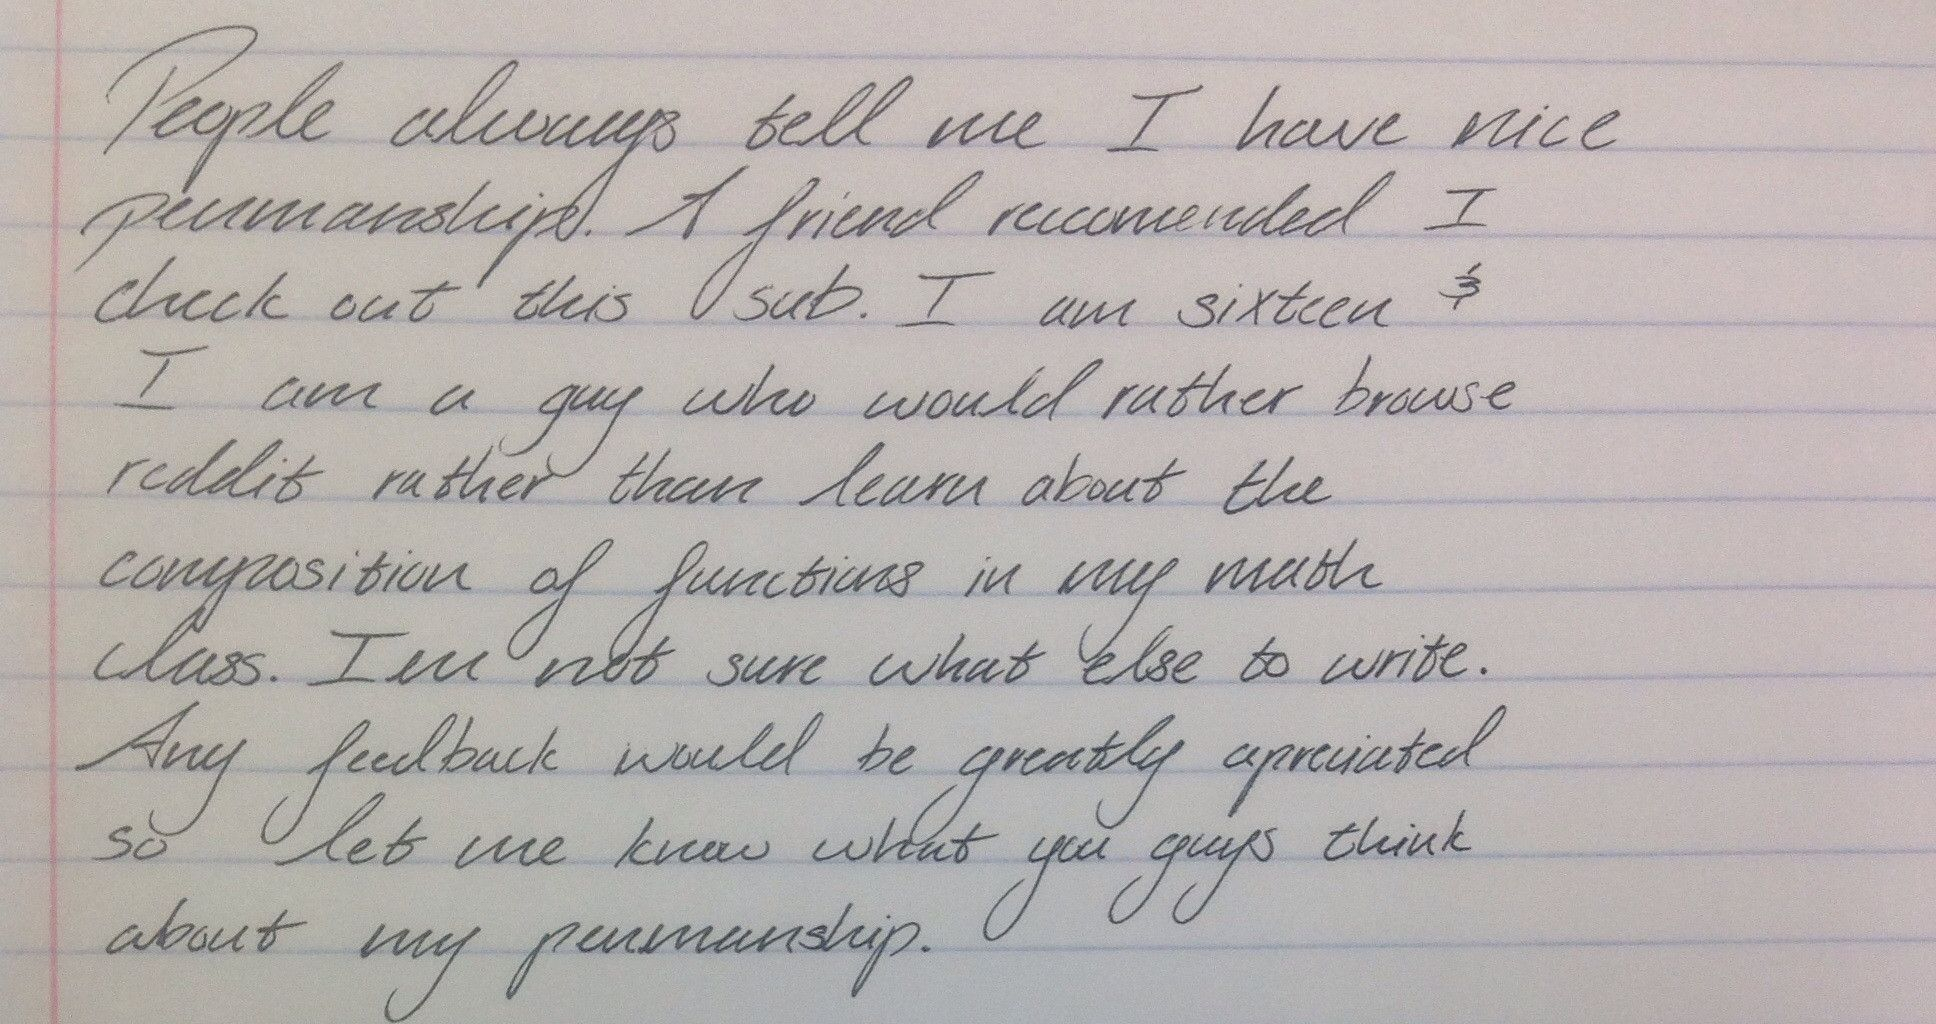 People always tell me I have nice
penmanship. A friend recomended I
check out this sub. I am sixteen &
I am a guy who would rather browse
reddit rather than learn about the
composition of functions in my math
class. Im not sure what else to write.
Any feedback would be greatly apreciated
so let me know what you guys think
about my penmanship.